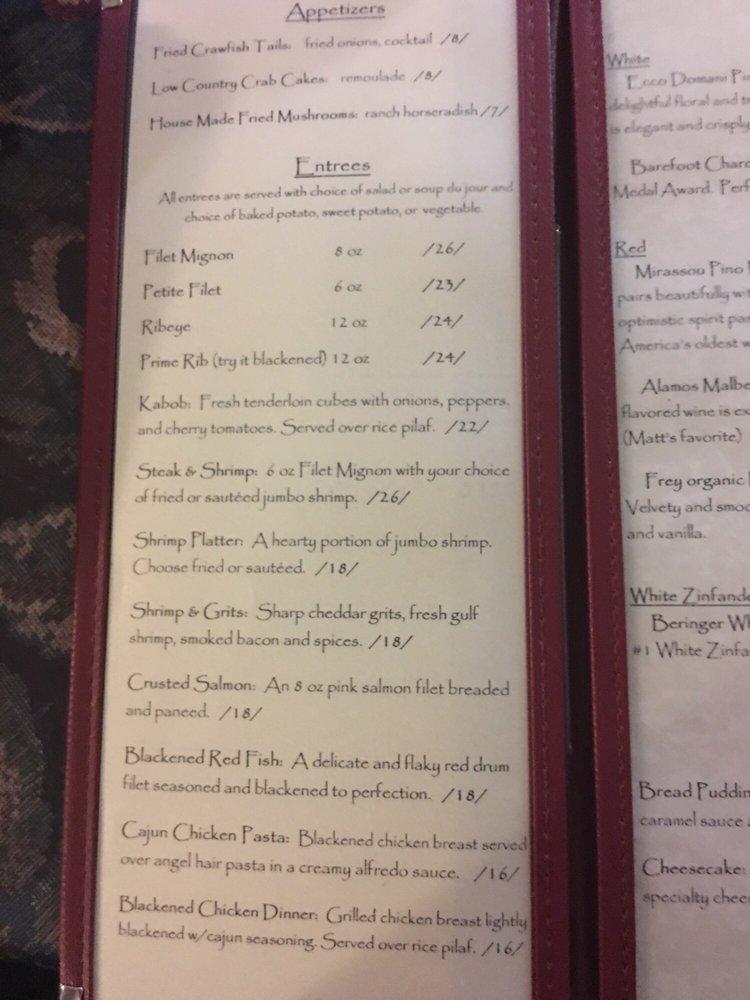 Appetizers
Fried Crawfish Tails: fried onions, cocktail /8/
Low Country Crab Cakes: remoulade /8/
House Made Fried Mushrooms: ranch horseradish /7/
Entrees
All entrees are served with choice of salad or soup du jour and
choice of baked potato, sweet potato, or vegetable.
Filet Mignon 8 oz /26/
Petite Filet 6 oz /23/
Ribeye 12 oz /24/
Prime Rib (try it blackened) 12 oz /24/
Kabob: Fresh tenderloin cubes with onions, peppers,
and cherry tomatoes. Served over rice pilaf. /22/
Steak & Shrimp: 6 oz Filet Mignon with your choice
of fried or sautéed jumbo shrimp. /26/
Shrimp Platter: A hearty portion of jumbo shrimp.
Choose fried or sautéed. /18/
Shrimp & Grits: Sharp cheddar grits, fresh gulf
shrimp, smoked bacon and spices. /18/
Crusted Salmon: An 8 oz pink salmon filet breaded
and paneed. /18/
Blackened Red Fish: A delicate and flaky red drum
filet seasoned and blackened to perfection. /18/
Cajun Chicken Pasta: Blackened chicken breast served
over angel hair pasta in a creamy alfredo sauce. /16/
Blackened Chicken Dinner: Grilled chicken breast lightly
blackened w/cajun seasoning. Served over rice pilaf. /16/
White
Ecco Domani
delightful floral and
is elegant and crisply
Barefoot
Medal Award.
Red
Mirassou Pino
pairs beautifully
optimistic spirit
America's oldest
Alamos
flavored wine is
(Matt's favorite)
Frey organic
Velvety and
and vanilla.
White
Beringer
#1 White
Bread
caramel sauce
Cheesecake:
specialty